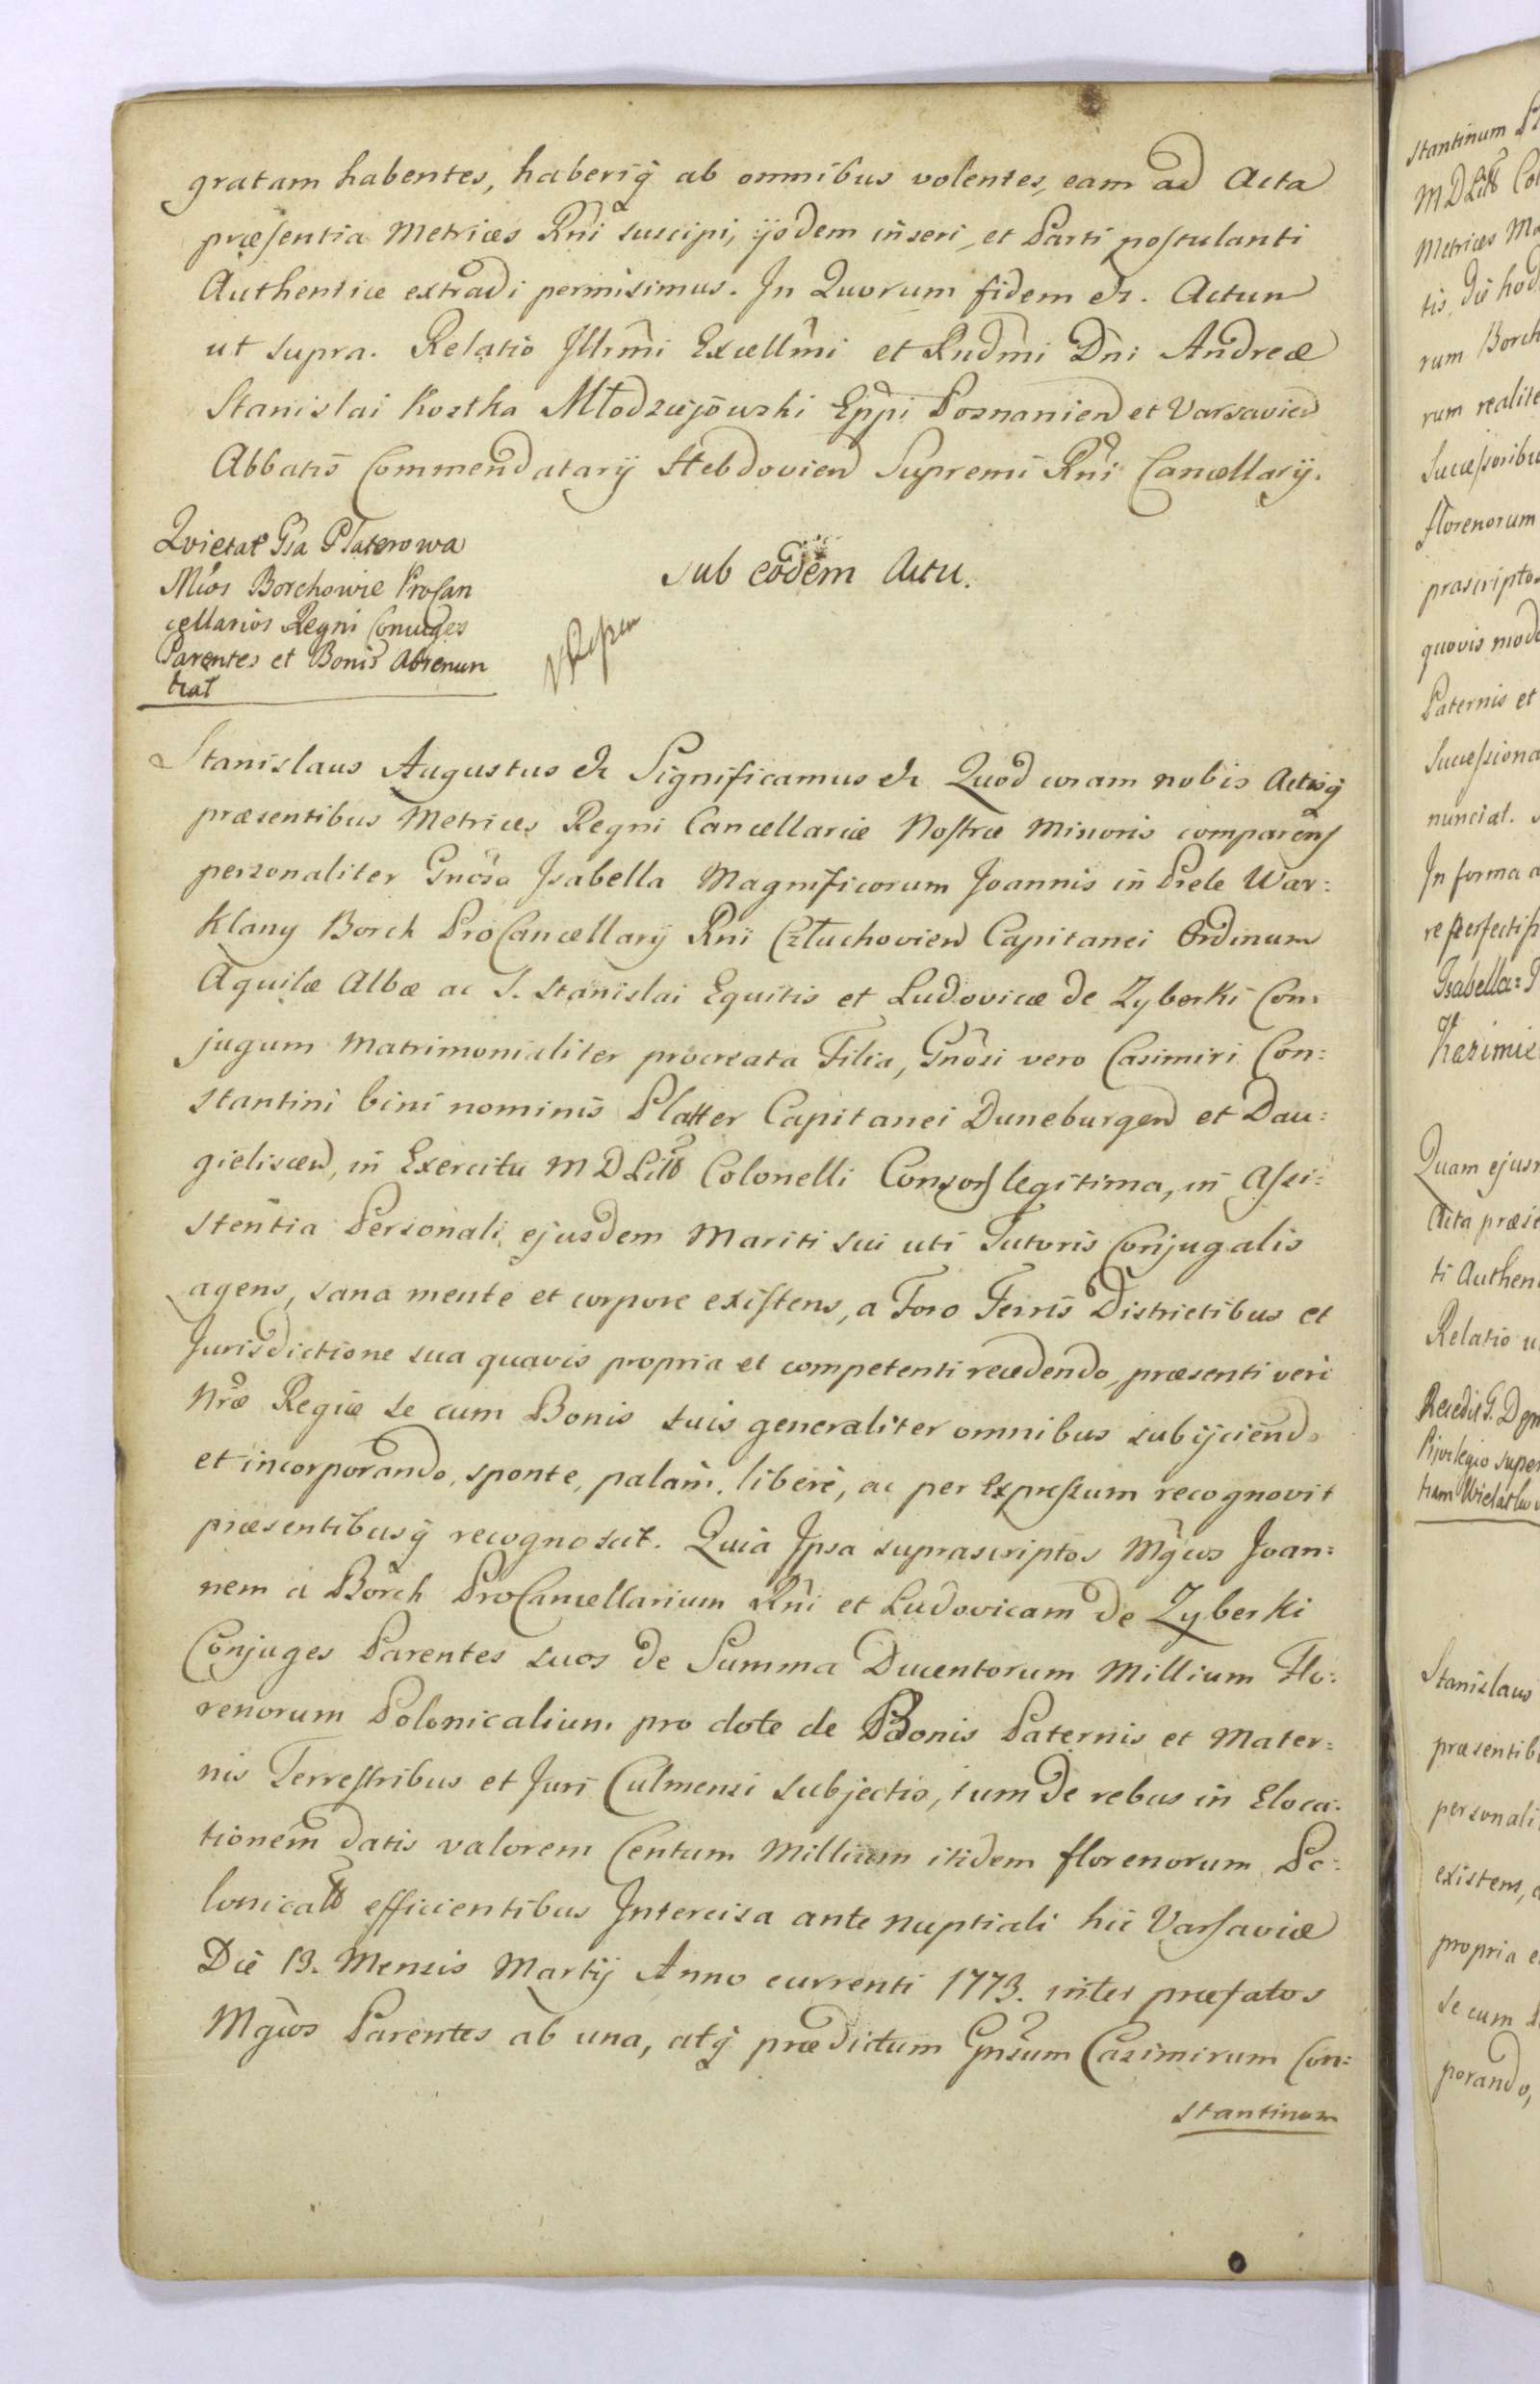 gratam habentes, haberiq̃ ab omnibus volentes, eam ad Acta
præsentia Metrices Rñi suscipi, ijsdem inseri, et Parti postulanti
Authentice extradi permisimus. In Quorum fidem etc. Actum
ut supra. Relatio Illr̃mi Excellm̃i et Rndm̃i Dñi Andreæ
Stanislai Kostka Młodziejowski Epp̃i Posnanien et Varsavien
Abbatis Commendatarij Hebdovien Supremi Rñi Cancellarij.
Quietat Gsa Platerowa
Mcos Borchowie ProCan
cellarios Regni Conuges
Parentes et Bonis Abrenun
tiat
Sub eodem Actu.
Stanislaus Augustus etc Significamus etc Quod coram nobis Actisq̃
præsentibus Metrices Regni Cancellariæ Nostræ Minoris comparens
personaliter Gnosa Isabella Magnificorum Joannis in Prele War:
klany Borch ProCancellarij Rñi Człuchovien Capitanei Ordinum
Aquilæ Albæ ac S. Stanislai Equitis et Ludovicæ de Zyberki Con:
jugum Matrimonialiter procreata Filia, Gnosi vero Casimiri Con:
stantini bini nominis Platter Capitanei Duneburgen et Dau:
gieliscen, in Exercitu M D Litt Colonelli Consors legitima, in Assi:
stentia Personali ejusdem Mariti sui uti Tutoris Conjugalis
agens, sana mente et corpore existens, a Foro Terris Districtibus et
Jurisdictione sua quavis propria et competenti recedendo, præsenti veri
Nr̃æ Regiæ se cum Bonis suis generaliter omnibus subijciendo
et incorporando, sponte, palam, libere, ac per expressum recognovit
præsentibusq̃ recognoscit. Quia Ipsa suprascriptos Mgcos Joan:
nem a Borch ProCancellarium Rñi et Ludovicam de Zyberki
Conjuges Parentes suos de Summa Ducentorum Millium Flo:
renorum Polonicalium pro dote de Bonis Paternis et Mater:
nis Terrestribus et Juri Culmensi subjectis, tum de rebus in Eloca:
tionem datis valorem Centum Millium itidem florenorum Po:
lonicall efficientibus Intercisa ante nuptiali hic Varsaviæ
Die 13. Mensis Martij Anno currenti 1773. inter præfatos
Mgcos Parentes ab una, atq̃ prædictum Gnsum Casimirum Con:
stantinum
stantinum
M D Litt
Metrices
tis, Die
rum Borch
rum
florenorum
quovis
Paternis et
nunciat.
In forma
Isabella
Kazimie
Quam
Acta
ti
Relatio
Recedit G.
Stanislaus
propria
se cum
porando,